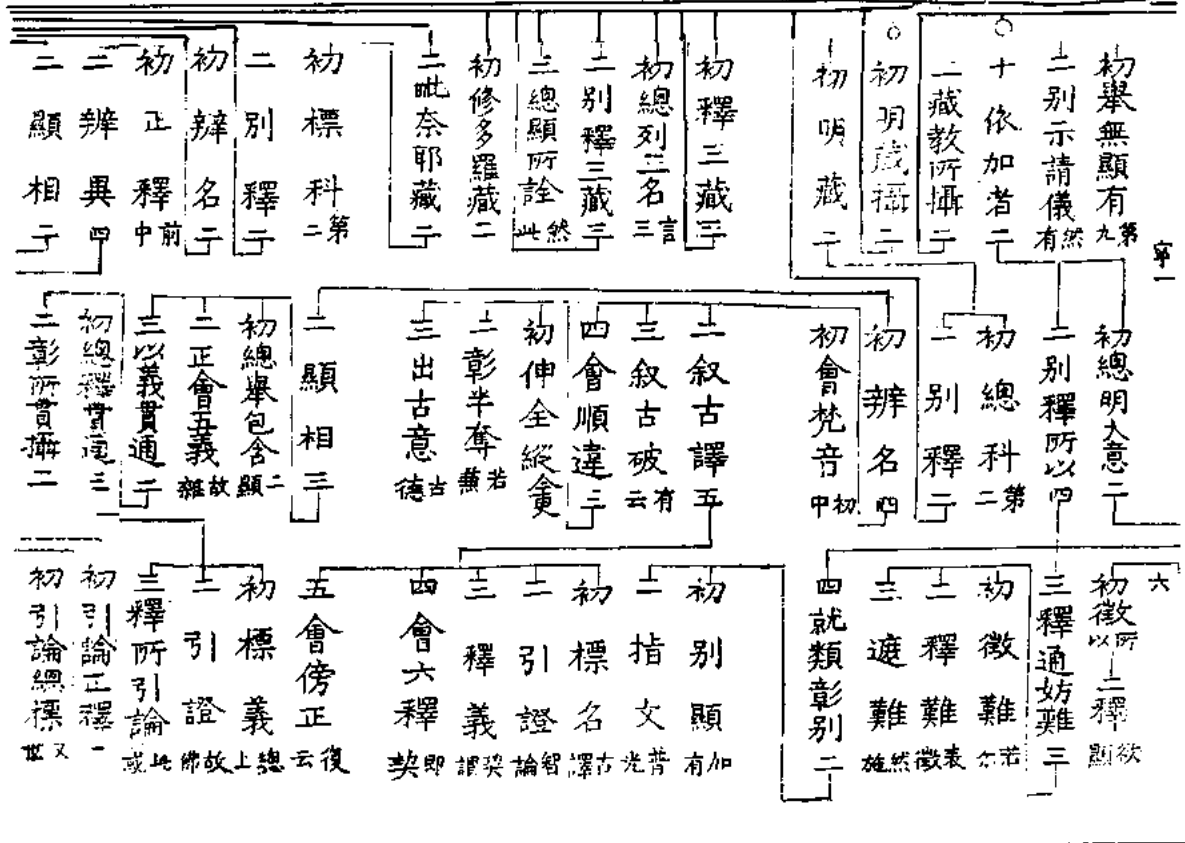 初舉無顯有 第九
二別示請儀 然有
○十依加者二
二藏教所攝二
○初明藏攝二
初明藏二
初釋三藏三
初總列三名 言三
二別釋三藏三
三總顯所詮 然此
初修多羅藏二
二毗奈耶藏二
初標科 第二
二別釋二
初辨名二
初正釋 前中
二辨異四
二顯相二
寧一
初總明大意二
二別釋所以四
初總科 第二
二別釋二
初辨名四 初中
初會梵音
二叙古譯五
三叙古破 有云
四會順違三
初伸全縱奪
二彰半奪 若兼
三出古意 古德
二顯相三
初總舉包含 二顯
二正會五義 故雜
三以義貫通二
初總釋貫通三
二彰所貫攝二
六
初徵所以 二釋 欲顯
三釋通妨難三
初徵難 若尔
二釋難 表徵
三遮難 然雖
四就類彰別二
初別顯 加有
二指文 普光
初標名 古譯
二引證 智論
三釋義 契謂
四會六釋 即契
五會傍正 復云
初標義 總上
二引證 故佛
三釋所引論 此或
初引論正釋
初引論總標 又世